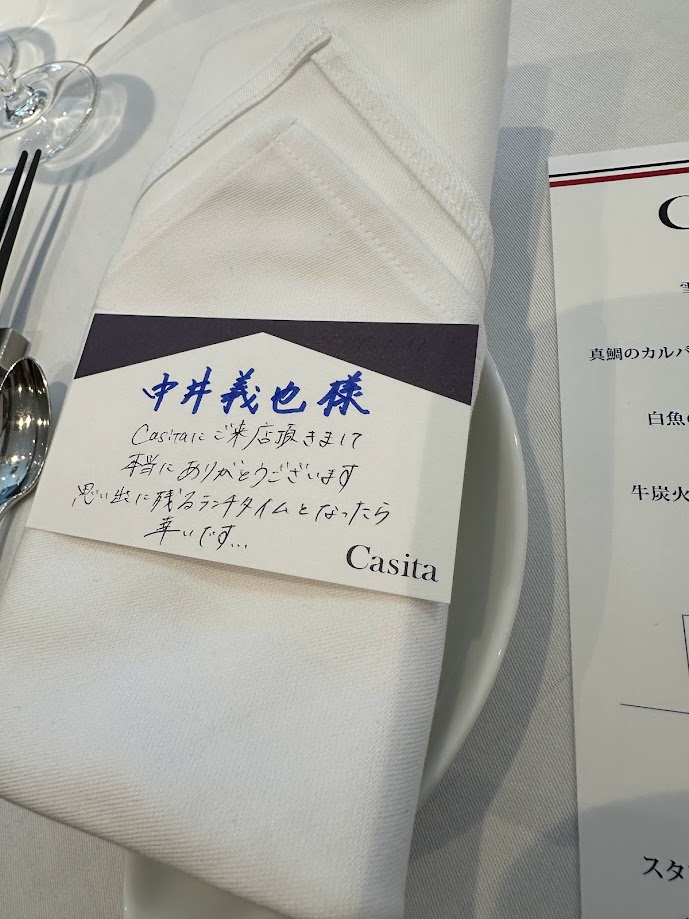 中井義也様
Casitaに ご来店頂きまして
本当に ありがとうございます
思い出に残るランチタイムとなったら
幸いです...
Casita
C
真鯛のカルパ
白魚の
牛炭火
スタ